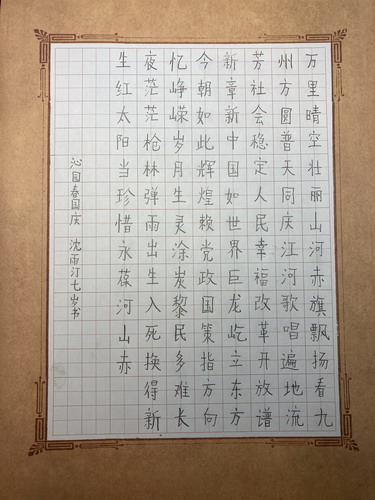 万里晴空壮丽山河赤旗飘扬看九
州方圆普天同庆江河歌唱遍地流
芳社会稳定人民幸福改革开放谱
新章新中国如世界巨龙屹立东方
今朝如此辉煌赖党政国策指方向
忆峥嵘岁月生灵涂炭黎民多难长
夜茫茫枪林弹雨出生入死换得新
生红太阳当珍惜永葆河山赤
沁园春国庆 沈雨汀七岁书